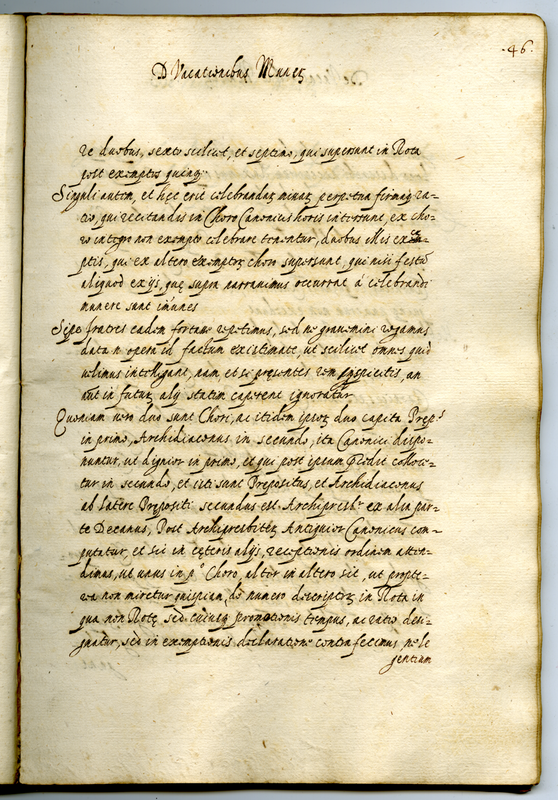 .46.
D Vacationibus Munerꝫ
re duobus, sexto scilicet, et septimo, qui supersunt in Rota
post exemptos quinqꝫ
Singuli autem, et hęc erit celebrandaꝝ missaꝝ perpetua firmaqꝫ ra-
tio, qui recitandis in Choro Canonicis horis intersunt, ex cho-
ro integro non exempto celebrare tenentur, duobus illis exem-
ptis, qui ex altero exemptoꝝ choro supersunt, qui nisi festū
aliquod ex ijs, quę supra narravimus occurrat à celebrandi
munere sunt im̄unes
Sępe fratres eadem fortasse repetimus, sed ne gravemini rogamus
data n. opera id factum existimate, ut scilicet omnes quid
velimus intelligant, nam et si presentes rem perspicitis, an
aut in futuꝝ alij statim caperent ignoratur
Quoniam vero duo sunt Chori, ac itidem ipsoꝝ duo capita Prep.s
in primo, Archidiaconus in secundo, ita Canonici dispo-
nuntur, ut dignior in primo, et qui post ipsum prodit colloce-
tur in secundo, et uti sunt Prepositus, et Archidiaconus
ab latere Prepositi secundus est Archipresb.r ex alia par-
te Decanus, Post Archipresbiteꝝ Antiquior Canonicus com-
putatur, et sic in cęteris alijs, receptionis ordinem atten-
dimus, ut unus in p.o Choro, alter in altero sit, ut propte-
rea non miretur quispiam, de numero descriptoꝝ in Rota in
qua non Rotę sed cuiusqꝫ promotionis tempus, ac ratio desi-
gnatur, sed in exemptionis declaratione contra fecimus, ne le
gentium